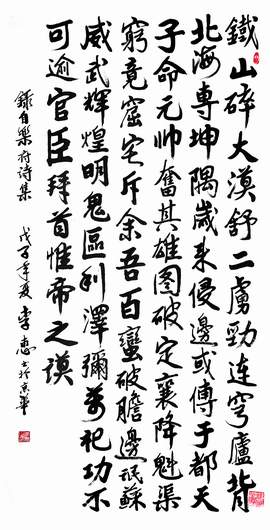 鐵山碎大漠舒二虜勁連穹廬背
北海專坤隅歲來侵邊或傅于都天
子命元帥奮其雄圖破定襄降魁渠
窮竟窟宅斥余吾百蠻破膽邊氓蘇
威武輝煌明鬼區利澤彌萬祀功不
可逾官臣拜首惟帝之謨
錄自樂府詩集
戊子年夏李惠書於京華